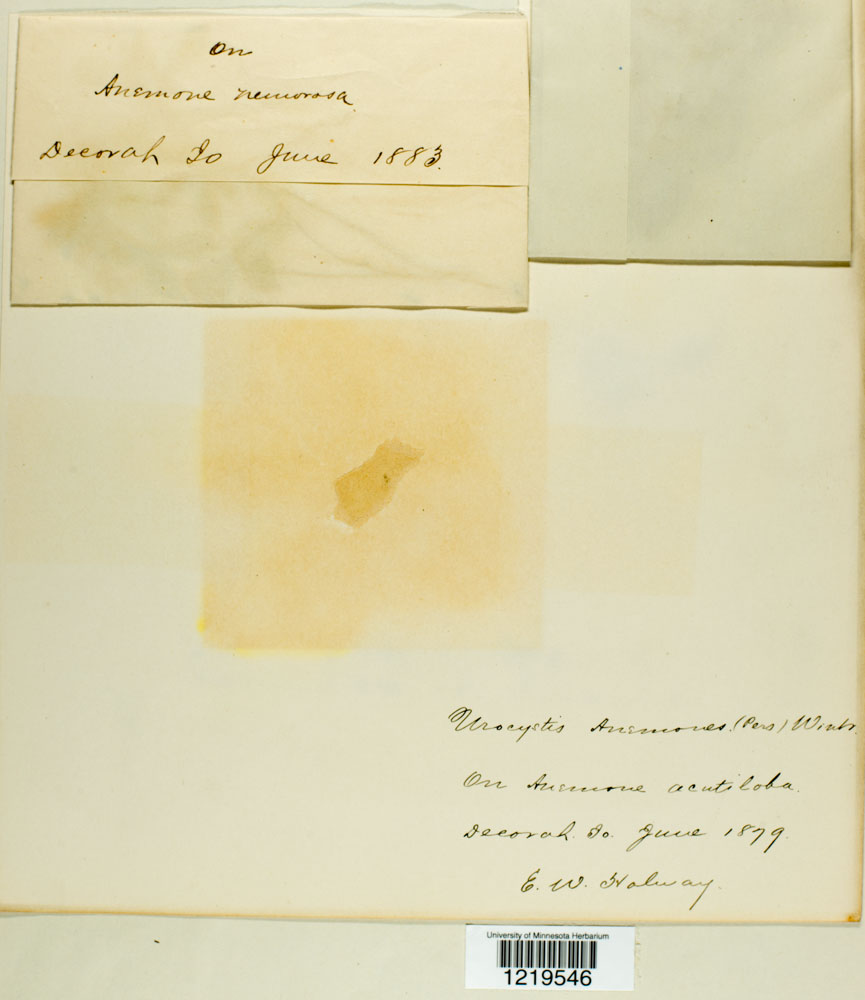 On
Anemone nemorosa
Decorah Io June 1883.
Urocystis Anemones. (Pers) Wintr.
On Anemone acutiloba.
Decorah. Io. June 1879.
E. W. Holway.
University of Minnesota Herbarium
1219546